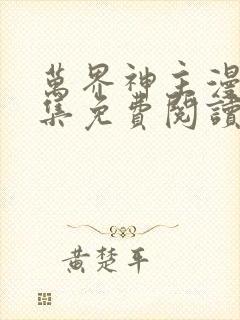 萬界神主漫
集免費閱讀
黃楚平